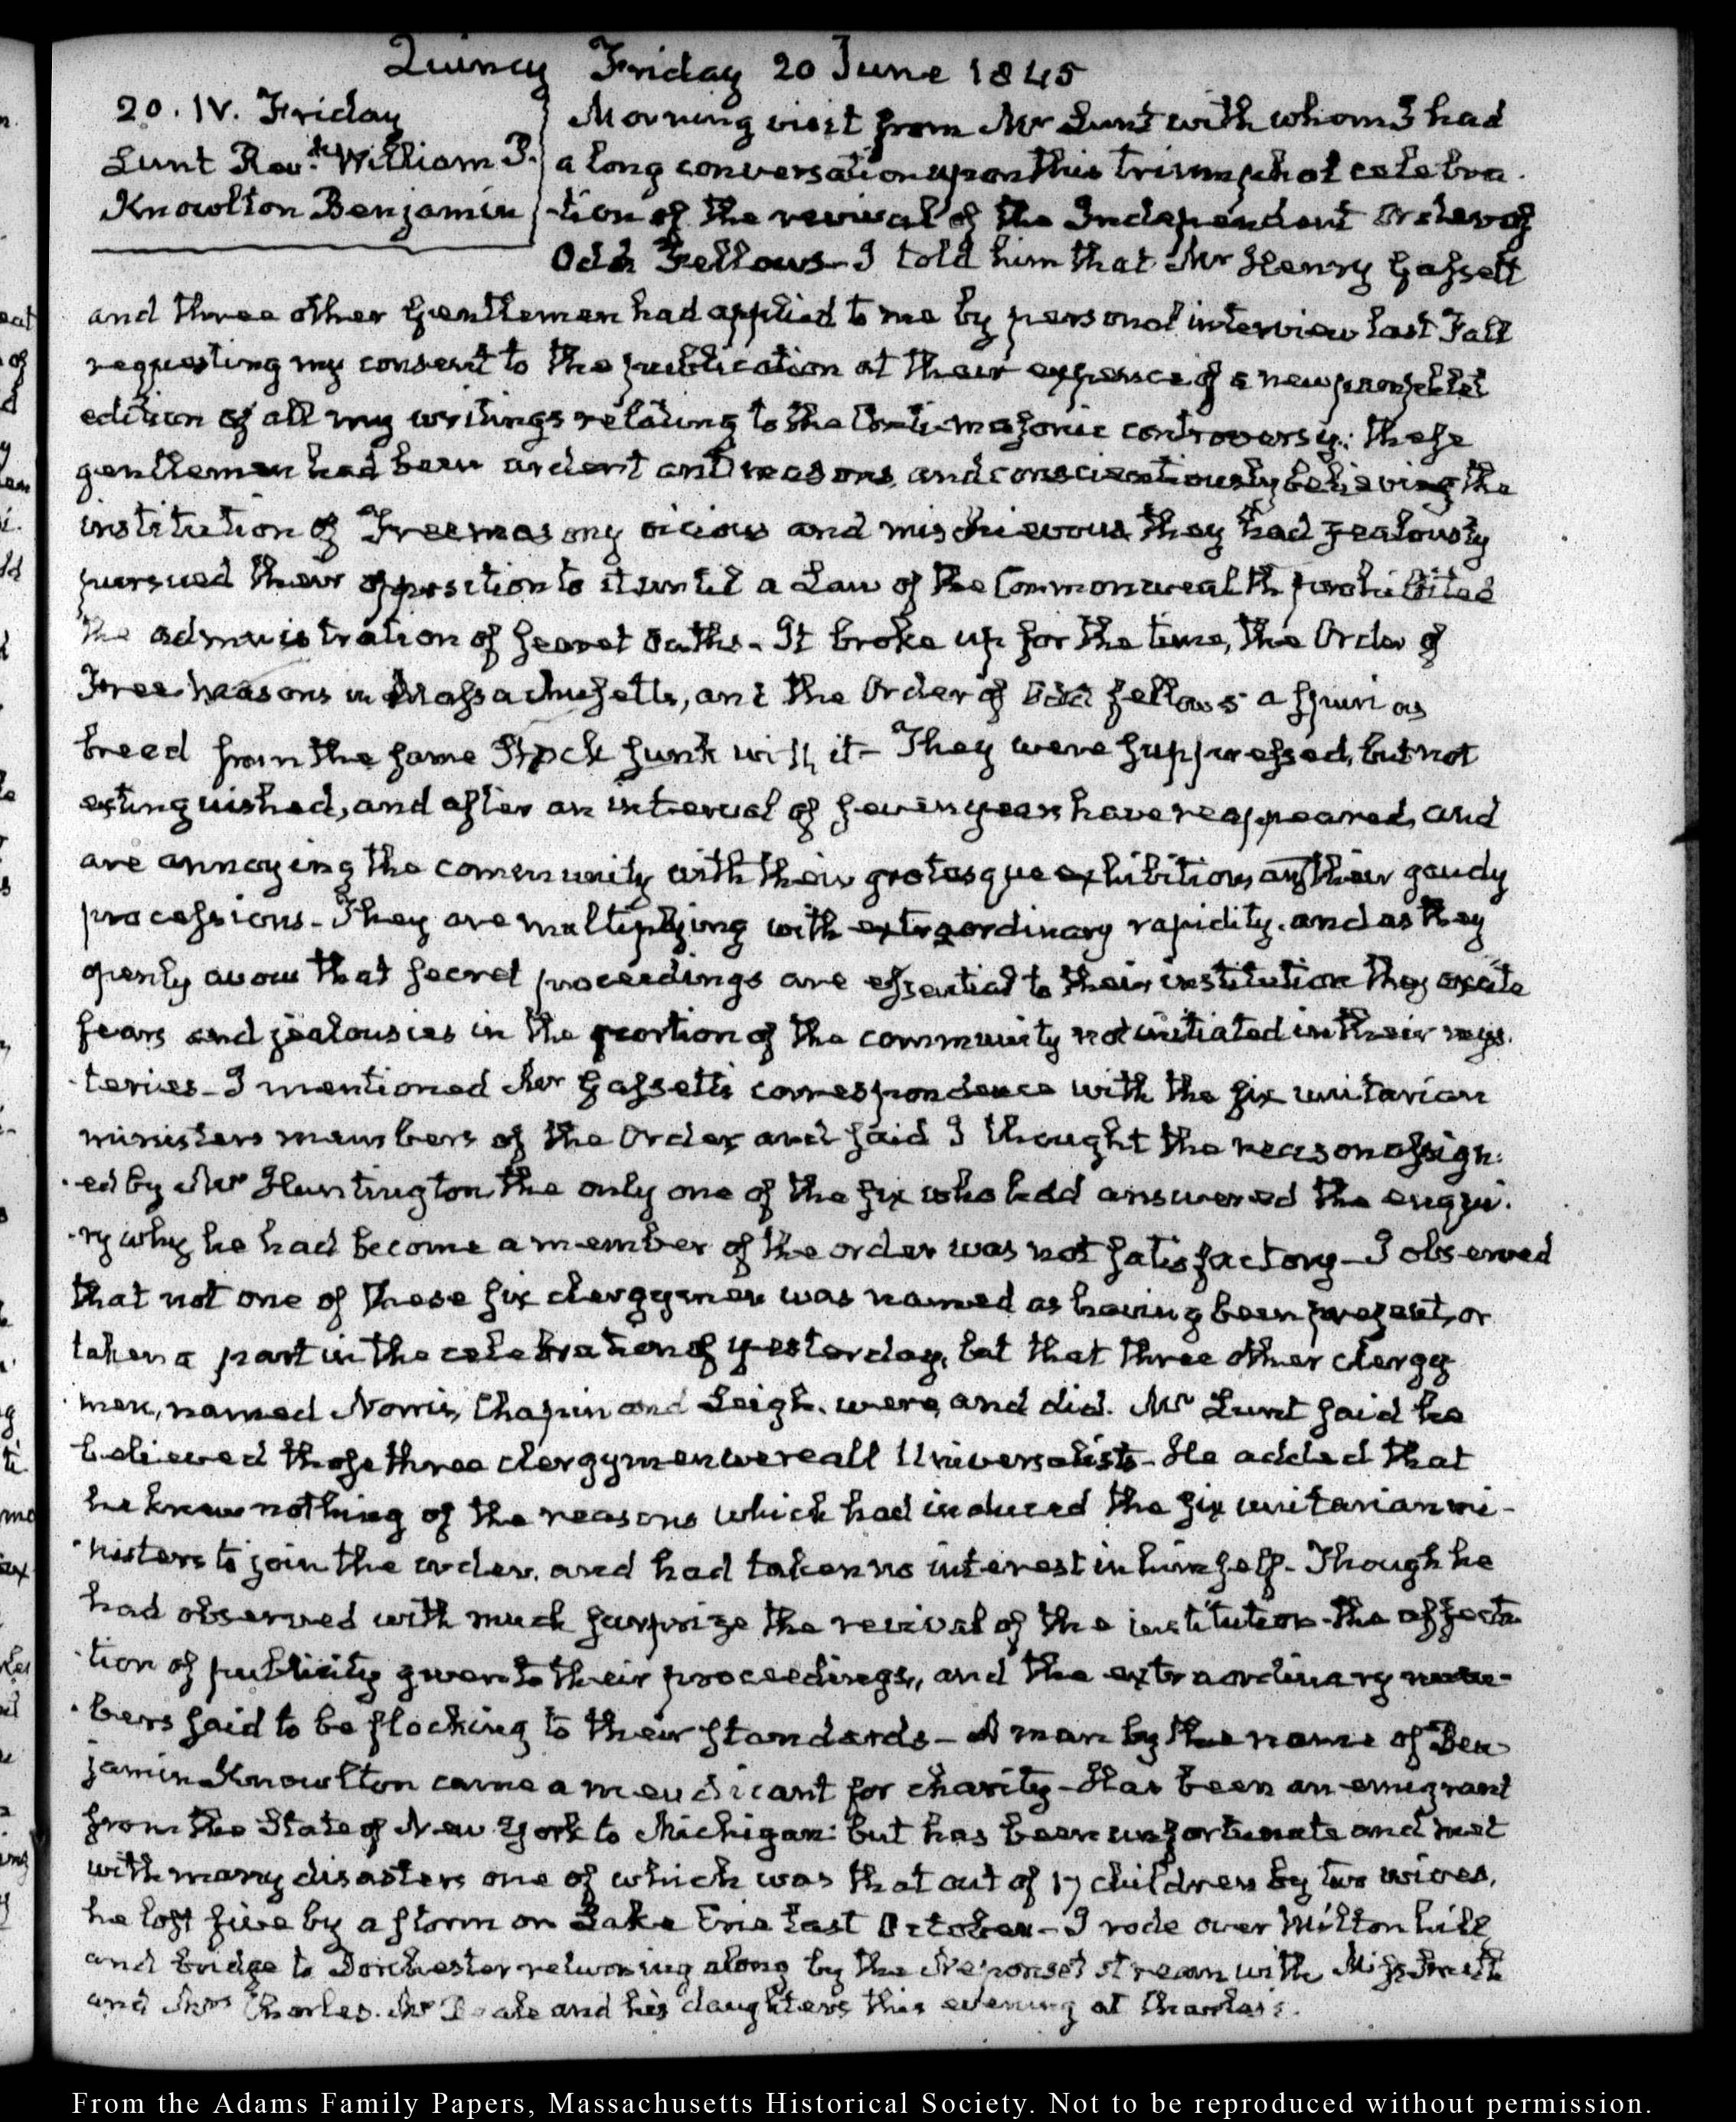 Quincy Friday 20 June 1845
20. IV. Friday
Lunt Revd. William P.
Knowlton Benjamin
Morning visit from Mr Lunt with whom I had
a long conversation upon this triumphal celebra-
-tion of the revival of the Independent Order of
Odd Fellows - I told him that Mr Henry Gassett
and three other Gentlemen had applied to me by personal interview last Fall
requesting my consent to the publication at their expence of a new pamphlet
edition of all my writings relating to the Anti-masonic controversy: these
gentlemen had been ardent antimasons, and conscientiously believing the
institution of Freemasonry vicious and mischievous they had zealously
pursued their opposition to it until a Law of the Commonwealth prohibited
the administration of secret Oaths - It broke up for the time, the Order of
Free masons in Massachusetts, and the Order of Odd fellows a spurious
breed from the same Stock sunk with it - They were suppressed, but not
extinguished, and after an interval of seven years have reappeared, and
are annoying the community with their grotesque exhibitions and their gaudy
processions - They are multiplying with extraordinary rapidity, and as they
openly avow that secret proceedings are essential to their institution they excite
fears and jealousies in the portion of the community not initiated in their mys-
-teries - I mentioned Mr Gassetts correspondence with the six unitarian
ministers members of the Order and said I thought the reason assign-
-ed by Mr Huntington the only one of the six who had answered the enqui-
-ry why he had become a member of the order was not satisfactory - I observed
that not one of these six clergymen was named as having been present, or
taken a part in the celebration of yesterday, but that three other clergy
-men, named Norris, Chapin and Leigh, were, and did. Mr Lunt said he
believed those three clergymen were all Universalists - He added that
he knew nothing of the reasons which had induced the six unitarian mi-
-nisters to join the order, and had taken no interest in himself - Though he
had observed with much surprize the revival of the institution - the affecta
-tion of publicity given to their proceedings, and the extraordinary num-
-bers said to be flocking to their standards - A man by the name of Ben
jamin Knowlton came a mendicant for charity - Has been an emigrant
from the State of New York to Michigan: but has been unfortunate and met
with many disasters one of which was that out of 17 children by two wives,
he lost five by a storm on Lake Erie last October - I rode over Milton hill
and bridge to Dorchester returning along by the Neponset stream with Miss Smith
and Mrs Charles. Mr and his daughters this evening at Charles's.
From the Adams Family Papers, Massachusetts Historical Society. Not to be reproduced without permission.